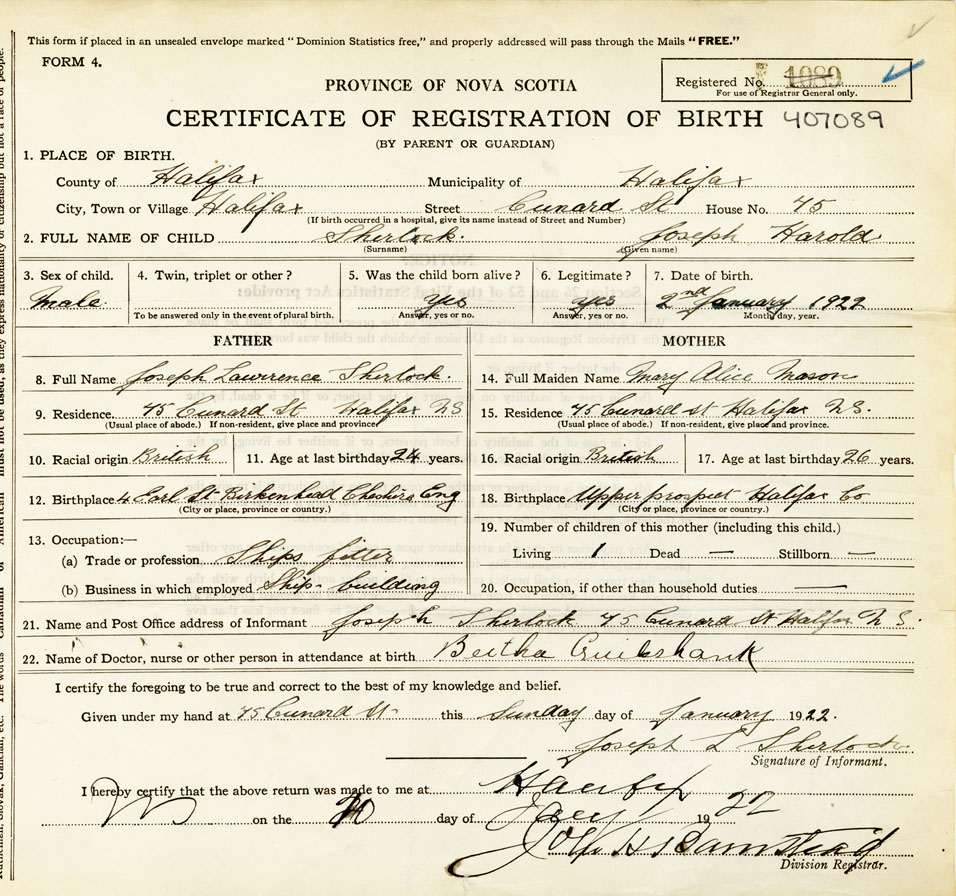 This form if placed in an unsealed envelope marked "Dominion Statistics free," and properly addressed will pass through the Mails "FREE."
FORM 4.
Registered No. 1089
For use of Registrar General only.
PROVINCE OF NOVA SCOTIA
CERTIFICATE OF REGISTRATION OF BIRTH 407089
(BY PARENT OR GUARDIAN)
1. PLACE OF BIRTH.
County of Halifax Municipality of Halifax
City, Town or Village Halifax Street Cunard St House No. 45
(If birth occurred in a hospital, give its name instead of Street and Number)
2. FULL NAME OF CHILD Sherlock. Joseph Harold
(Surname) (Given name)
3. Sex of child. 4. Twin, triplet or other? 5. Was the child born alive? 6. Legitimate? 7. Date of birth.
Male. yes yes 2nd January 1922
To be answered only in the event of plural birth. Answer, yes or no. Answer, yes or no. Month, day, year.
FATHER MOTHER
8. Full Name Joseph Lawrence Sherlock. 14. Full Maiden Name Mary Alice Mason
9. Residence. 45 Cunard St Halifax NS 15. Residence 45 Cunard st Halifax NS.
(Usual place of abode.) If non-resident, give place and province (Usual place of abode.) If non-resident, give place and province.
10. Racial origin British 11. Age at last birthday 24 years. 16. Racial origin British 17. Age at last birthday 26 years.
12. Birthplace 4 Earl St Birkenhead Cheshire Eng 18. Birthplace Upper prospect Halifax Co
(City or place, province or country.) (City or place, province or country.)
19. Number of children of this mother (including this child.)
13. Occupation:—
(a) Trade or profession Ships fitter Living 1 Dead — Stillborn —
(b) Business in which employed Ship-building 20. Occupation, if other than household duties —
21. Name and Post Office address of Informant Joseph Sherlock 45 Cunard St Halifax N S.
22. Name of Doctor, nurse or other person in attendance at birth Bertha Cruikshank
I certify the foregoing to be true and correct to the best of my knowledge and belief.
Given under my hand at 45 Cunard St this Sunday day of January 1922.
Joseph L Sherlock
Signature of Informant.
I hereby certify that the above return was made to me at
on the day of 1922
Division Registrar.